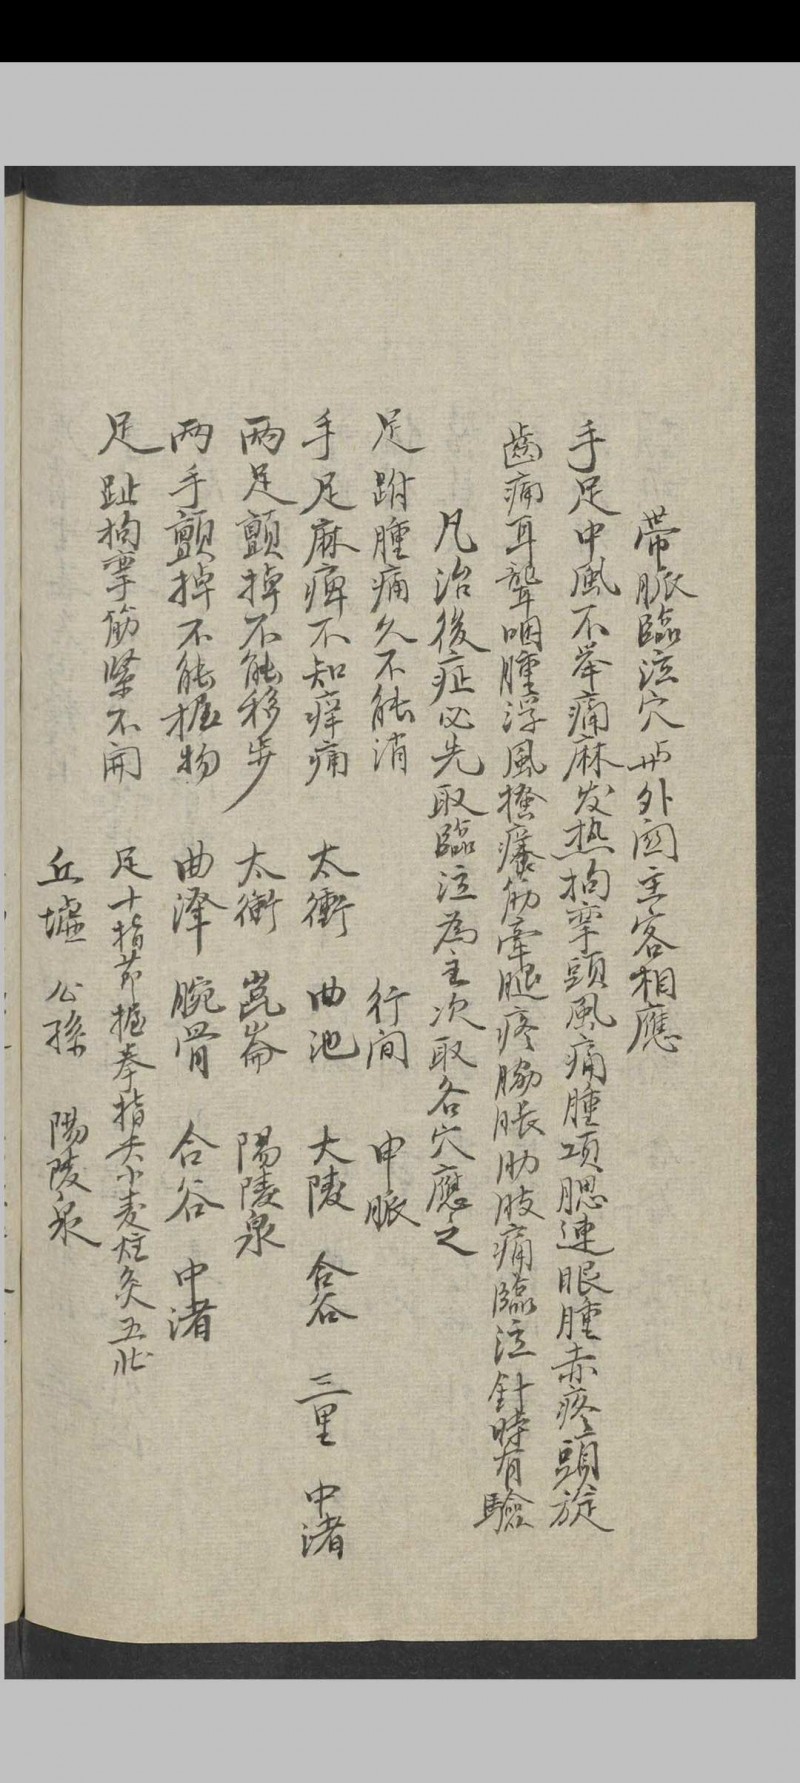 帶脈臨泣穴與外関主客相應
手足中風不举痛麻发热拘挛頭風痛腫項腮連眼腫赤疼頭旋
齒痛耳聾咽腫浮風搔癢筋牽腿疼脇脹肋肢痛臨泣針時有驗
凡治後症必先取臨泣為主次取各穴應之
足跗腫痛久不能消 行间 申脈
手足麻痺不知痒痛 太衝 曲池 大陵 合谷 三里 中渚
两足顫掉不能移步 太衝 崑崙 陽陵泉
两手顫掉不能握物 曲澤 腕骨 合谷 中渚
足趾拘挛筋緊不開 足十指节握拳指尖小麦炷灸五壮
丘墟 公孫 陽陵泉